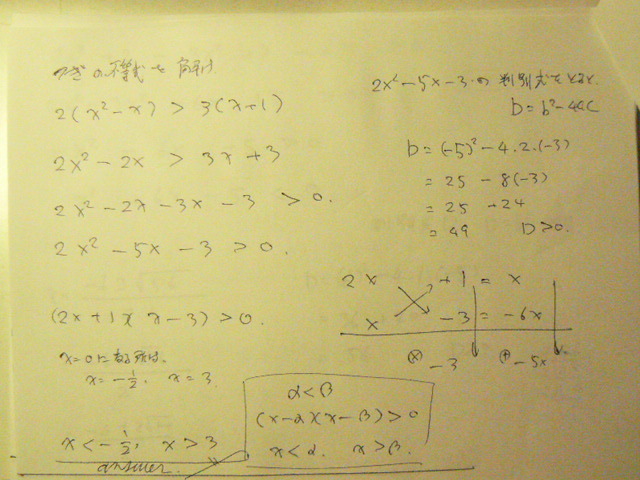 つぎの不等式を解け
2(x²-x) > 3(x+1)
2x² - 2x > 3x + 3
2x² - 2x - 3x - 3 > 0.
2x² - 5x - 3 > 0.
(2x+1)(x-3) > 0.
x=0になる所は、
x = -1/2, x = 3.
x < -1/2, x > 3
answer.
2x² - 5x - 3 の判別式をとると、
D = b² - 4ac
D = (-5)² - 4.2.(-3)
= 25 - 8(-3)
= 25 + 24
= 49 D>0.
2x +1 = x
x -3 = -6x
⊗ -3 ⊕ -5x
α<β
(x-α)(x-β)>0
x<α. x>β.